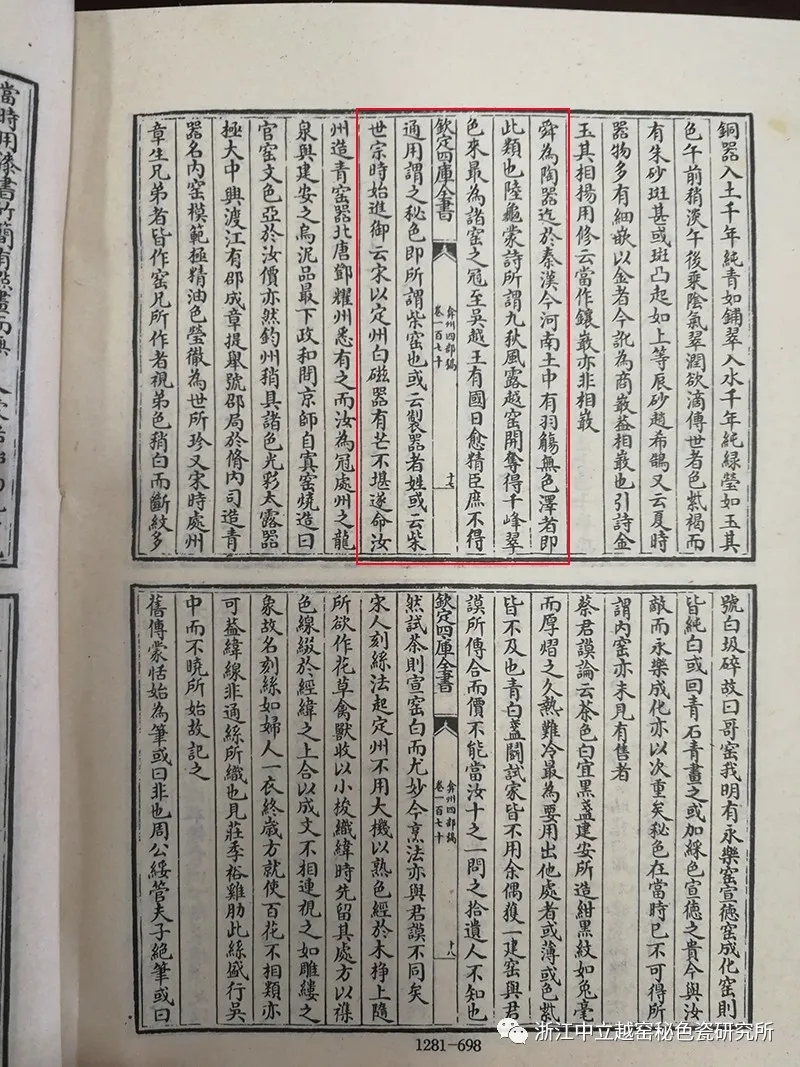 銅器入土千年純青如鋪翠入水千年純綠瑩如玉其
色午前稍淡午後乗陰氣翠潤欲滴傳世者色紫褐而
有朱砂斑甚或斑凸起如上等辰砂趙希鵠又云夏時
器物多有細嵌以金者今訛為商嵌葢相嵌也引詩金
玉其相楊用修云當作鑲嵌亦非相嵌
舜為陶器迄於秦漢今河南土中有羽觴無色澤者即
此類也陸龜蒙詩所謂九秋風露越窑開奪得千峰翠
色來最為諸窑之冠至吳越王有國日愈精臣庶不得
欽定四庫全書
弇州四部稿
卷一百七十
十七
通用謂之秘色即所謂柴窑也或云製器者姓或云柴
世宗時始進御云宋以定州白磁器有芒不堪遂命汝
州造青窑器北唐鄧耀州悉有之而汝為冠處州之龍
泉與建安之烏泥品最下政和間京師自窴窑燒造曰
官窑文色亞於汝價亦然鈞州稍具諸色光彩太露器
極大中興渡江有邵成章提舉號邵局於脩内司造青
器名内窑模範極精油色瑩徹為世所珍又宋時處州
章生兄弟者皆作窑兄所作者視弟色稍白而斷紋多
號白圾碎故曰哥窑我明有永樂窑宣德窑成化窑則
皆純白或回青石青畫之或加綵色宣德之貴今與汝
敵而永樂成化亦以次重矣秘色在當時已不可得所
謂内窑亦未見有售者
蔡君謨論云茶色白宜黑盞建安所造紺黑紋如兔毫
而厚熠之久熱難冷最為要用出他處者或薄或色紫
皆不及也青白盞鬭試家皆不用余偶獲一建窑與君
謨所傳合而價不能當汝十之一問之拾遺人不知也
欽定四庫全書
弇州四部稿
卷一百七十
十八
然試茶則宣窑白而尤妙今烹法亦與君謨不同矣
宋人刻絲法起定州不用大機以熟色經於木掙上隨
所欲作花草禽獸收以小梭織緯時先留其處方以襍
色線綴於經緯之上合以成文不相連視之如雕縷之
象故名刻絲如婦人一衣終歲方就使百花不相類亦
可葢緯線非通絲所織也見莊季裕雞肋此絲盛行吳
中而不曉所始故記之
舊傳蒙恬始為筆或曰非也周公綏管夫子絕筆或曰
1281-698
浙江中立越窑秘色瓷研究所